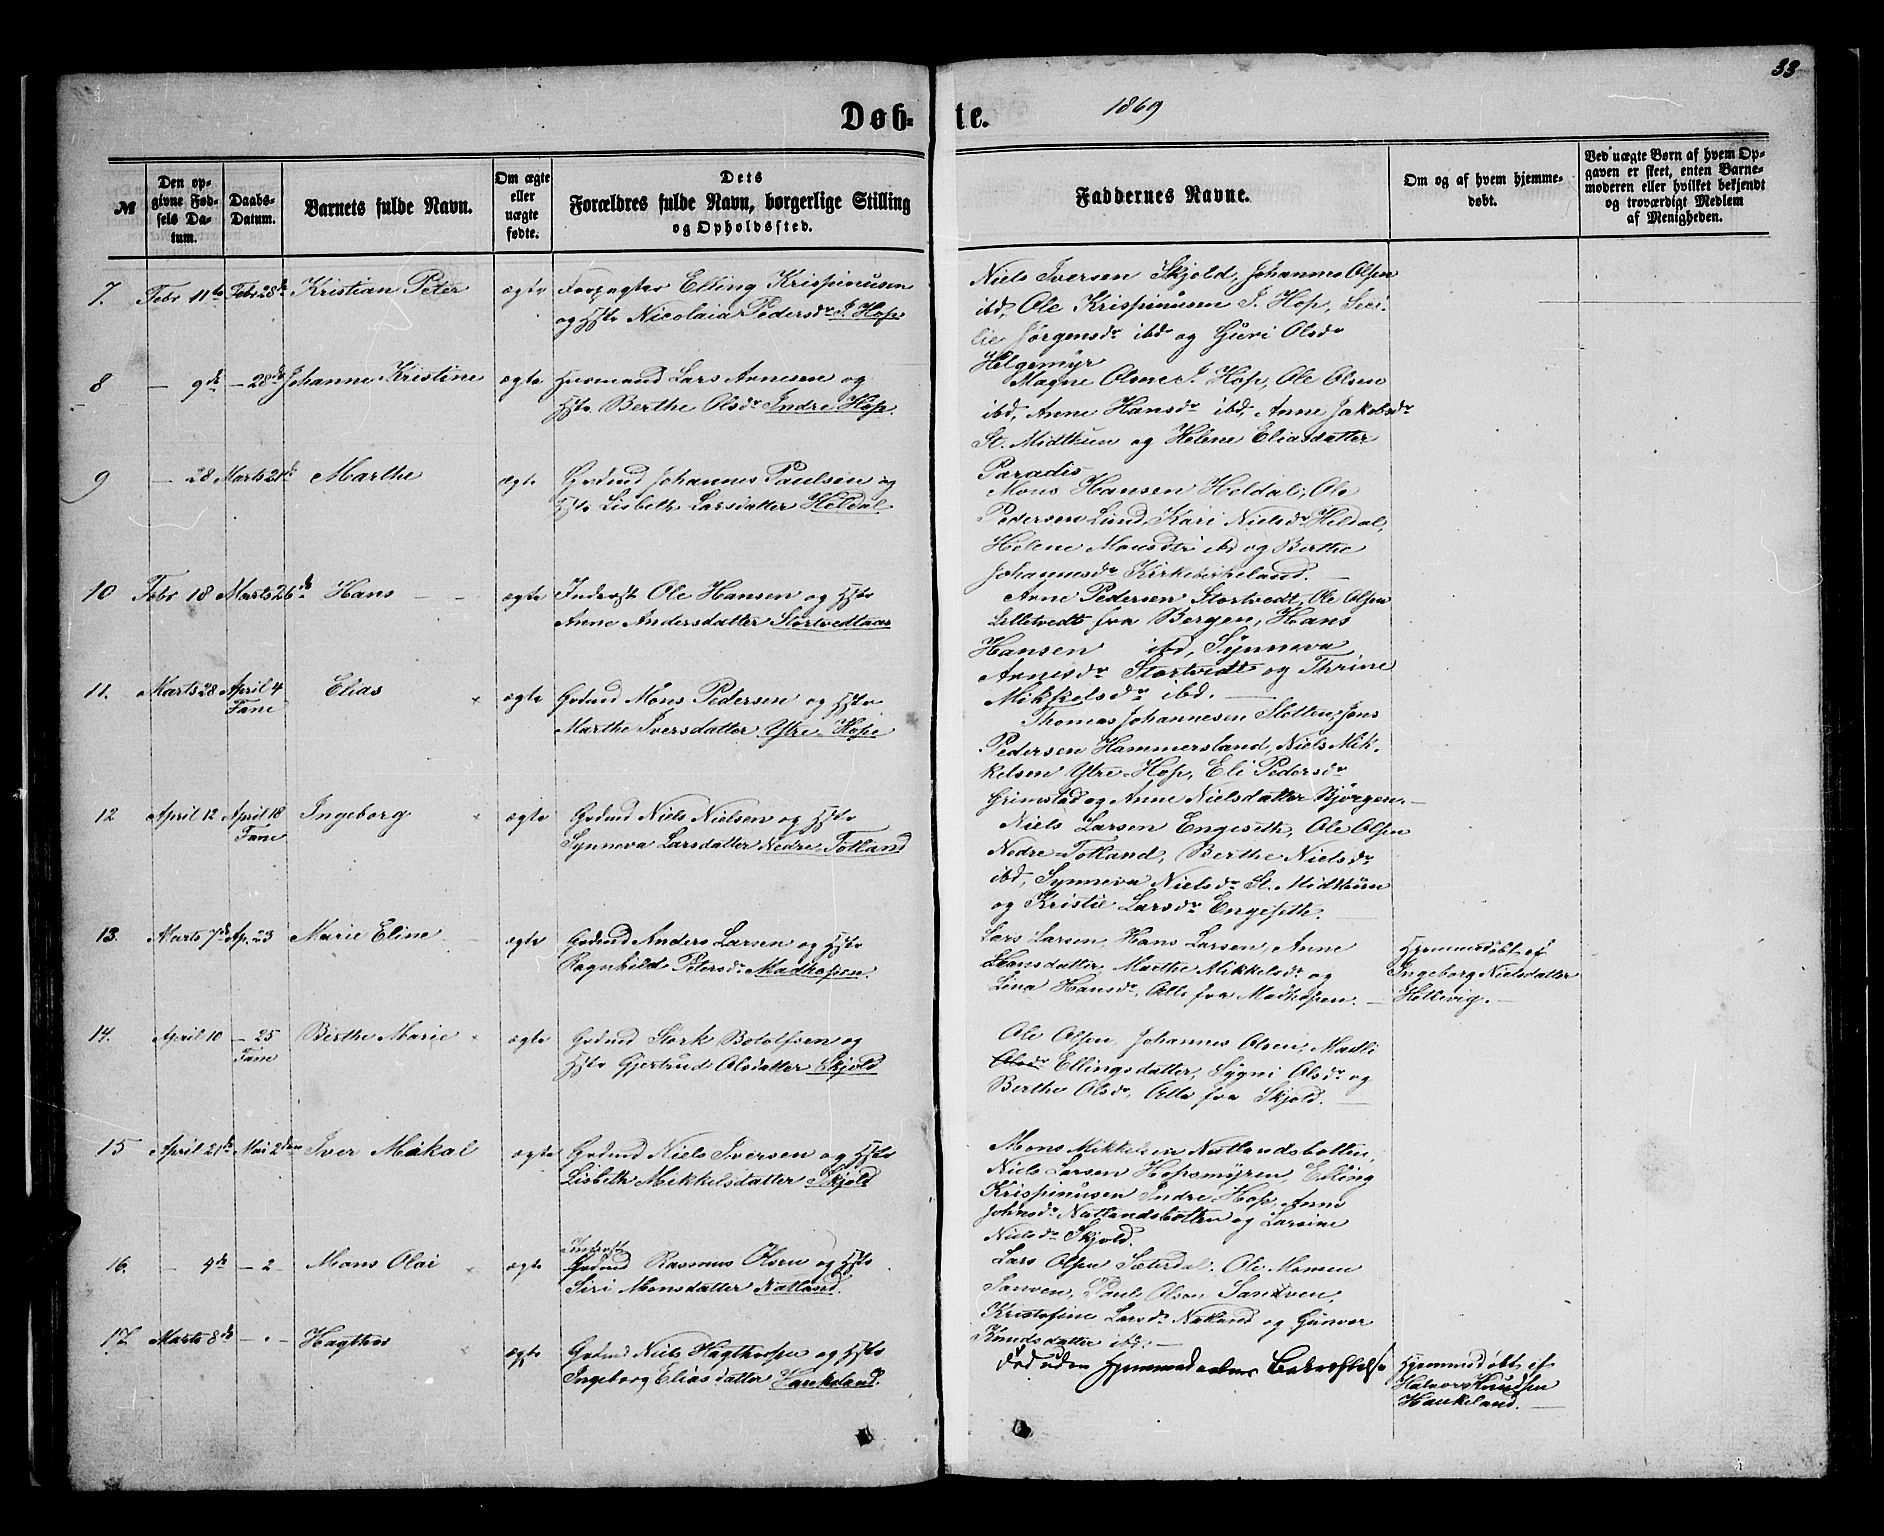 33
Døb- te. 1869
№
Den opgivne Fødsels Datum.
Daabs-Datum.
Barnets fulde Navn.
Om ægte eller uægte fødte.
Dets Forældres fulde Navn, borgerlige Stilling og Opholdssted.
Faddernes Navne.
Om og af hvem hjemmedøbt.
Ved uægte Børn af hvem Opgaven er skeet, enten Barnemoderen eller hvilket bekjendt og troværdigt Medlem af Menigheden.
7. Febr 11te Febr 28de Kristian Peter ægte Forpagter Elling Krispinusen
og Hstr Nicolaia Pedersdr I. Hop
Niels Iversen Skjold, Johannes Olsen
ibd, Ole Krispinusen I. Hop, Seci-
lie Jørgensdr ibd og Guri Olsdr
Helgemyr
8 — 9de — 28de Johanne Kristine ægte Husmand Lars Arnesen og
Hstr Berthe Olsdr Indre Hop.
Magne Olsen I. Hop, Ole Olsen
ibd, Anne Hansdr ibd, Anne Jakobsdr
St. Midttun og Helene Eliasdatter
Paradis
9 — 28 Marts 21de Marthe ægte Grdmd Johannes Paulsen og
Hstr Lisbeth Larsdatter Heldal
Mons Hansen Heldal, Ole
Pedersen Lund, Kari Nielsdr Heldal,
Helene Monsdtr ibd og Berthe
Johannesdr Kirkebirkeland. —
10 Febr 18 Marts 26de Hans — — ægte Inderst Ole Hansen og Hstr
Anne Andersdatter Stortvedtaas
Arne Pedersen Stortvedt, Ole Olsen
Lilletvedt fra Bergen, Hans
Hansen ibd, Synneva
Arnesdr Stortvedt og Thrine
Mikkelsdr ibd. —
11. Marts 28 April 4 Elias ægte Grdmd Mons Pedersen og Hstr
Fane
Marthe Iversdatter Ytre-Hope
Thomas Johannesen Sletten, Jens
Pedersen Hammersland, Niels Mik-
kelsen Ytre-Hop, Eli Pedersdr
Grimstad og Anne Nielsdatter Bjørgen. —
12 April 12 April 18 Ingeborg ægte Grdmd Niels Nielsen og Hstr
Fane
Synneva Larsdatter Nedre-Totland
Niels Larsen Engeseth, Ole Olsen
Nedre-Totland, Berthe Nielsdr
ibd, Synneva Nielsdr St. Midttun
og Kristie Larsdr Engesette.
13. Marts 7de Ap. 23 Marie Eline — ægte Grdmd Anders Larsen og Hstr
Ragnhild Petersdr Madhopen.
Lars Larsen, Hans Larsen, Anne
Hansdatter, Marthe Mikkelsdr og
Lina Hansdr, Alle fra Madhopen. —
Hjemmedøbt af
Ingeborg Nielsdatter
Hellevig. —
14. April 10 — 25 Berthe Marie ægte Grdmd Stork Botolfsen og
Fane
Hstr Gjertrud Olsdatter Skjold
Ole Olsen, Johannes Olsen, Madli
Olsdr Ellingsdatter, Sygni Olsdr og
Berthe Olsdr, Alle fra Skjold. —
15 April 21de Mai 2den Iver Mikal ægte Grdmd Niels Iversen og Hstr
Lisbeth Mikkelsdatter Skjold
Mons Mikkelsen Natlandsbotten,
Niels Larsen Hopsmyren, Elling
Krispinusen Indre Hop, Anne
Johnsdr Natlandsbotten og Larsine
Nielsdr Skjold.
16. — 4de — 2 Mons Olai ægte Inderst
Grdmd Rasmus Olsen og Hstr
Siri Monsdatter Natland.
Lars Olsen Sæterdal, Ole Monsen
Sanven, Paul Olsen Sandven,
Kristofine Larsdr Natland og Gunver
Knudsdatter ibd. —
17. Marts 8de — . — Hagthor ægte Grdmd Niels Hagthorsen og Hstr
Ingeborg Eliasdatter Haukeland.
Død uden Hjemmedaabens Bekræftelse
Hjemmedøbt af
Halvor Knudsen
Haukeland. —